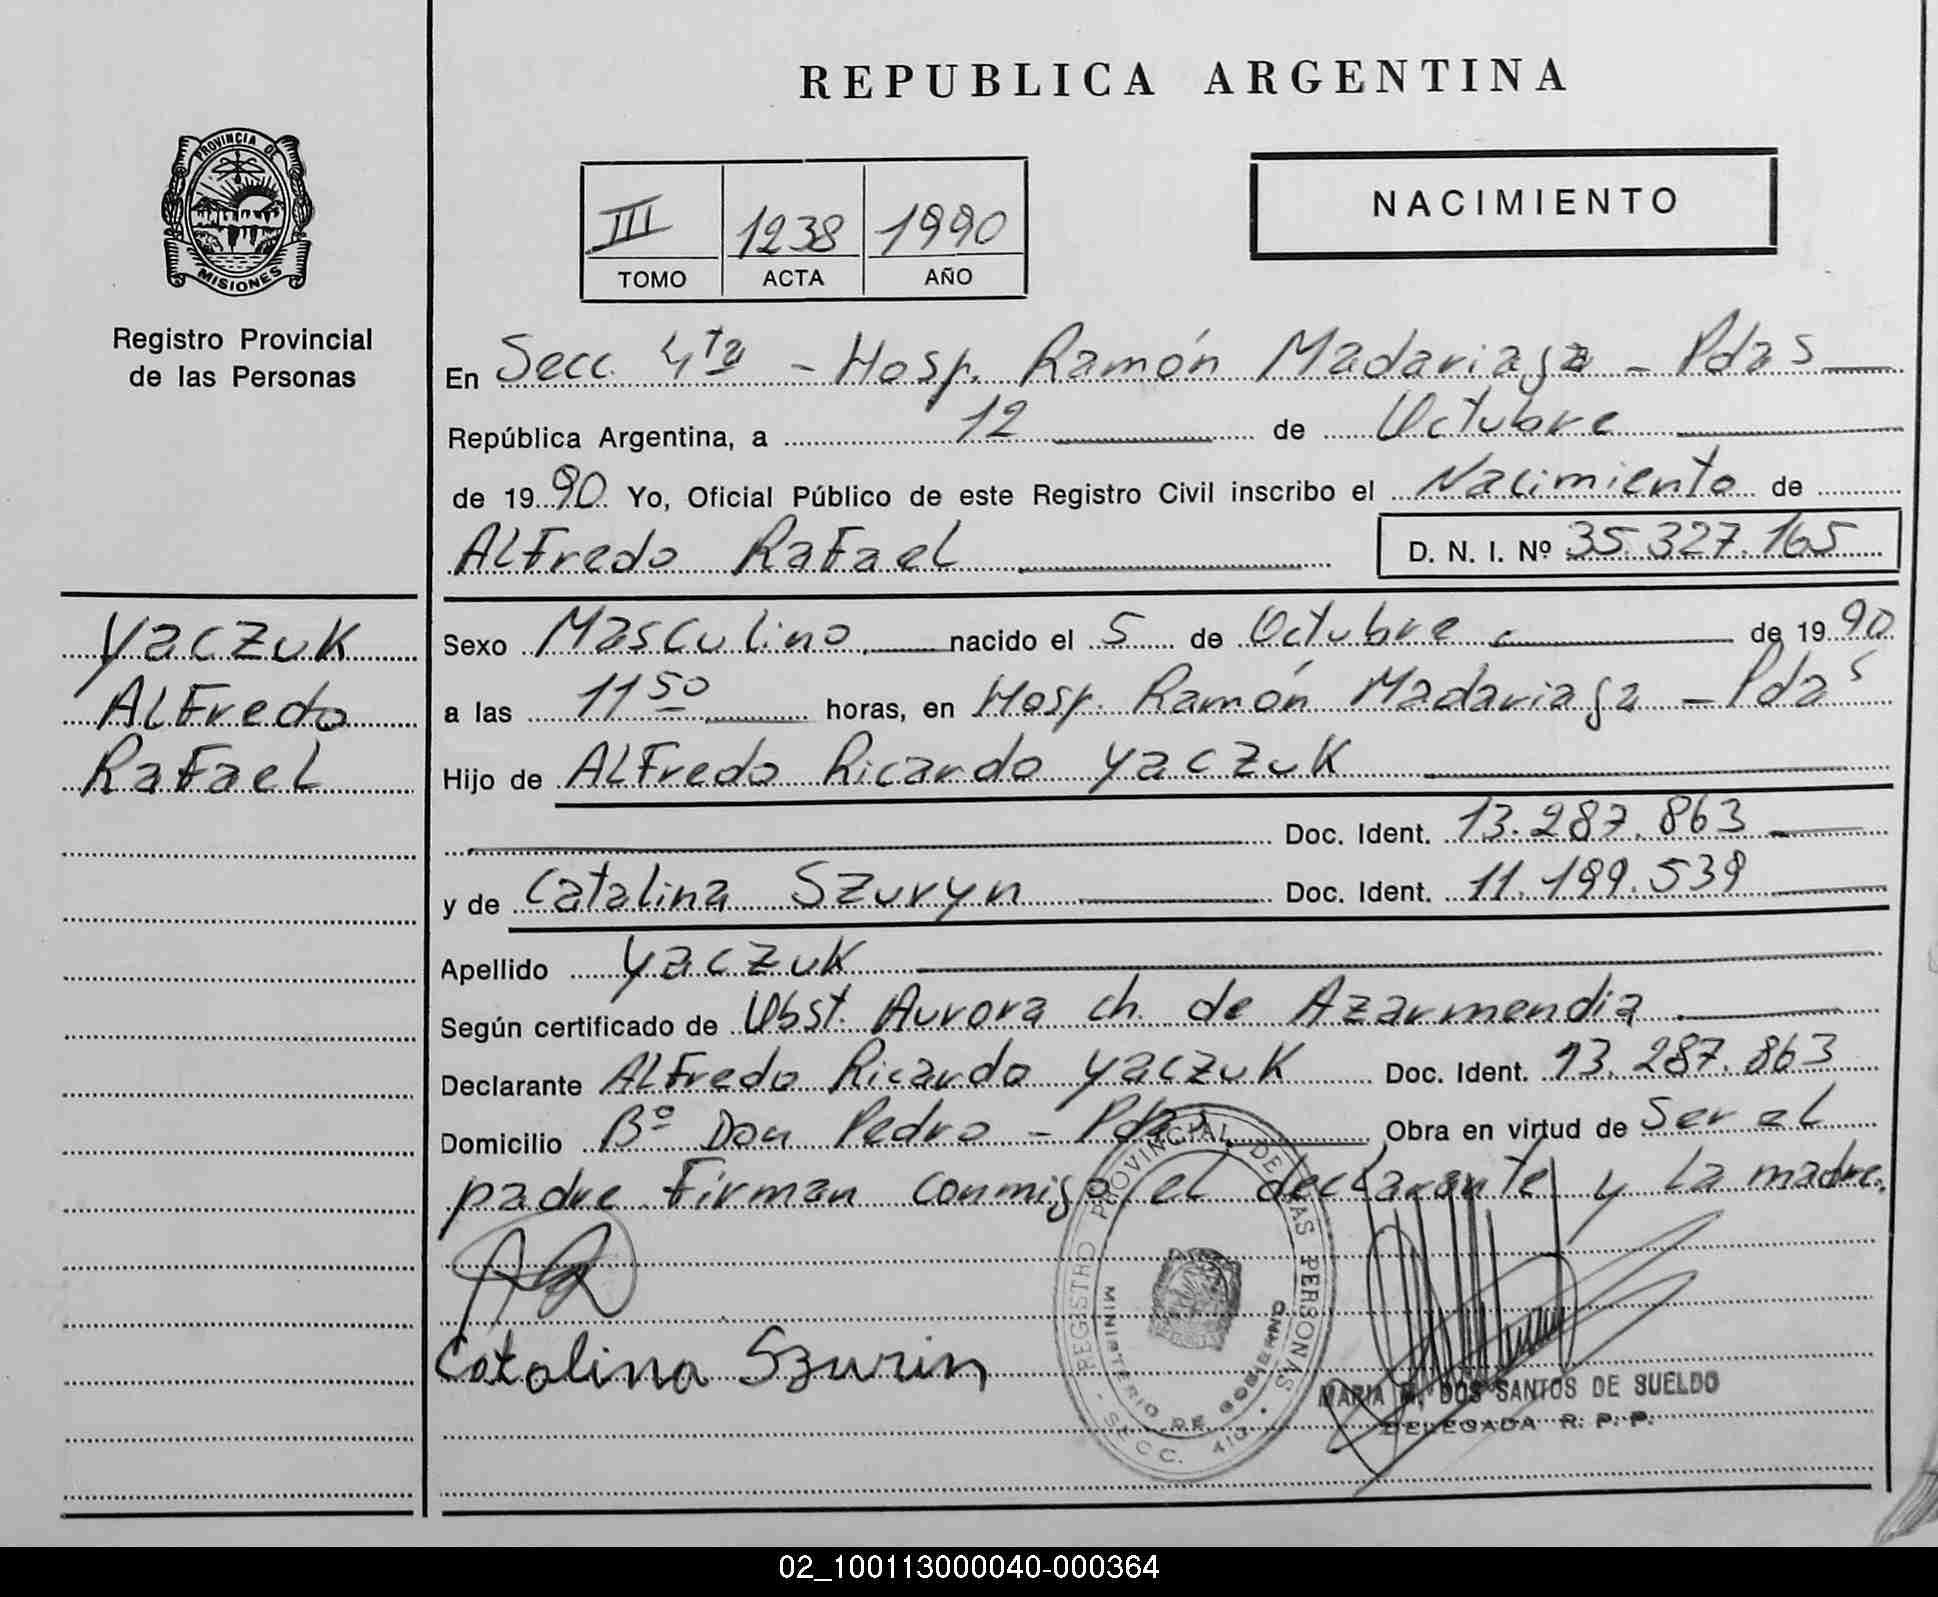 REPUBLICA ARGENTINA
PROVINCIA DE
MISIONES
Registro Provincial
de las Personas
III 1238 1990
TOMO ACTA AÑO
NACIMIENTO
En Secc. 4ta - Hosp. Ramón Madariaga - Pdas
República Argentina, a 12 de Octubre
de 1990 Yo, Oficial Público de este Registro Civil inscribo el Nacimiento de
Alfredo Rafael D. N. I. Nº 35.327.165
Yaczuk
Alfredo
Rafael
Sexo Masculino nacido el 5 de Octubre de 1990
a las 11 50 horas, en Hosp. Ramón Madariaga - Pdas
Hijo de Alfredo Ricardo Yaczuk
Doc. Ident. 13.287.863
y de Catalina Szuryn Doc. Ident. 11.199.539
Apellido Yaczuk
Según certificado de Obst. Aurora ch. de Azarmendia
Declarante Alfredo Ricardo Yaczuk Doc. Ident. 13.287.863
Domicilio Bº Don Pedro - Pdas Obra en virtud de Ser el
padre. Firman conmigo el declarante y la madre.
Catalina Szurin
REGISTRO PROVINCIAL DE LAS PERSONAS
MINISTERIO DE GOBIERNO
SECC. 4ta
MARIA M. DOS SANTOS DE SUELDO
DELEGADA R. P. P.
02_100113000040-000364